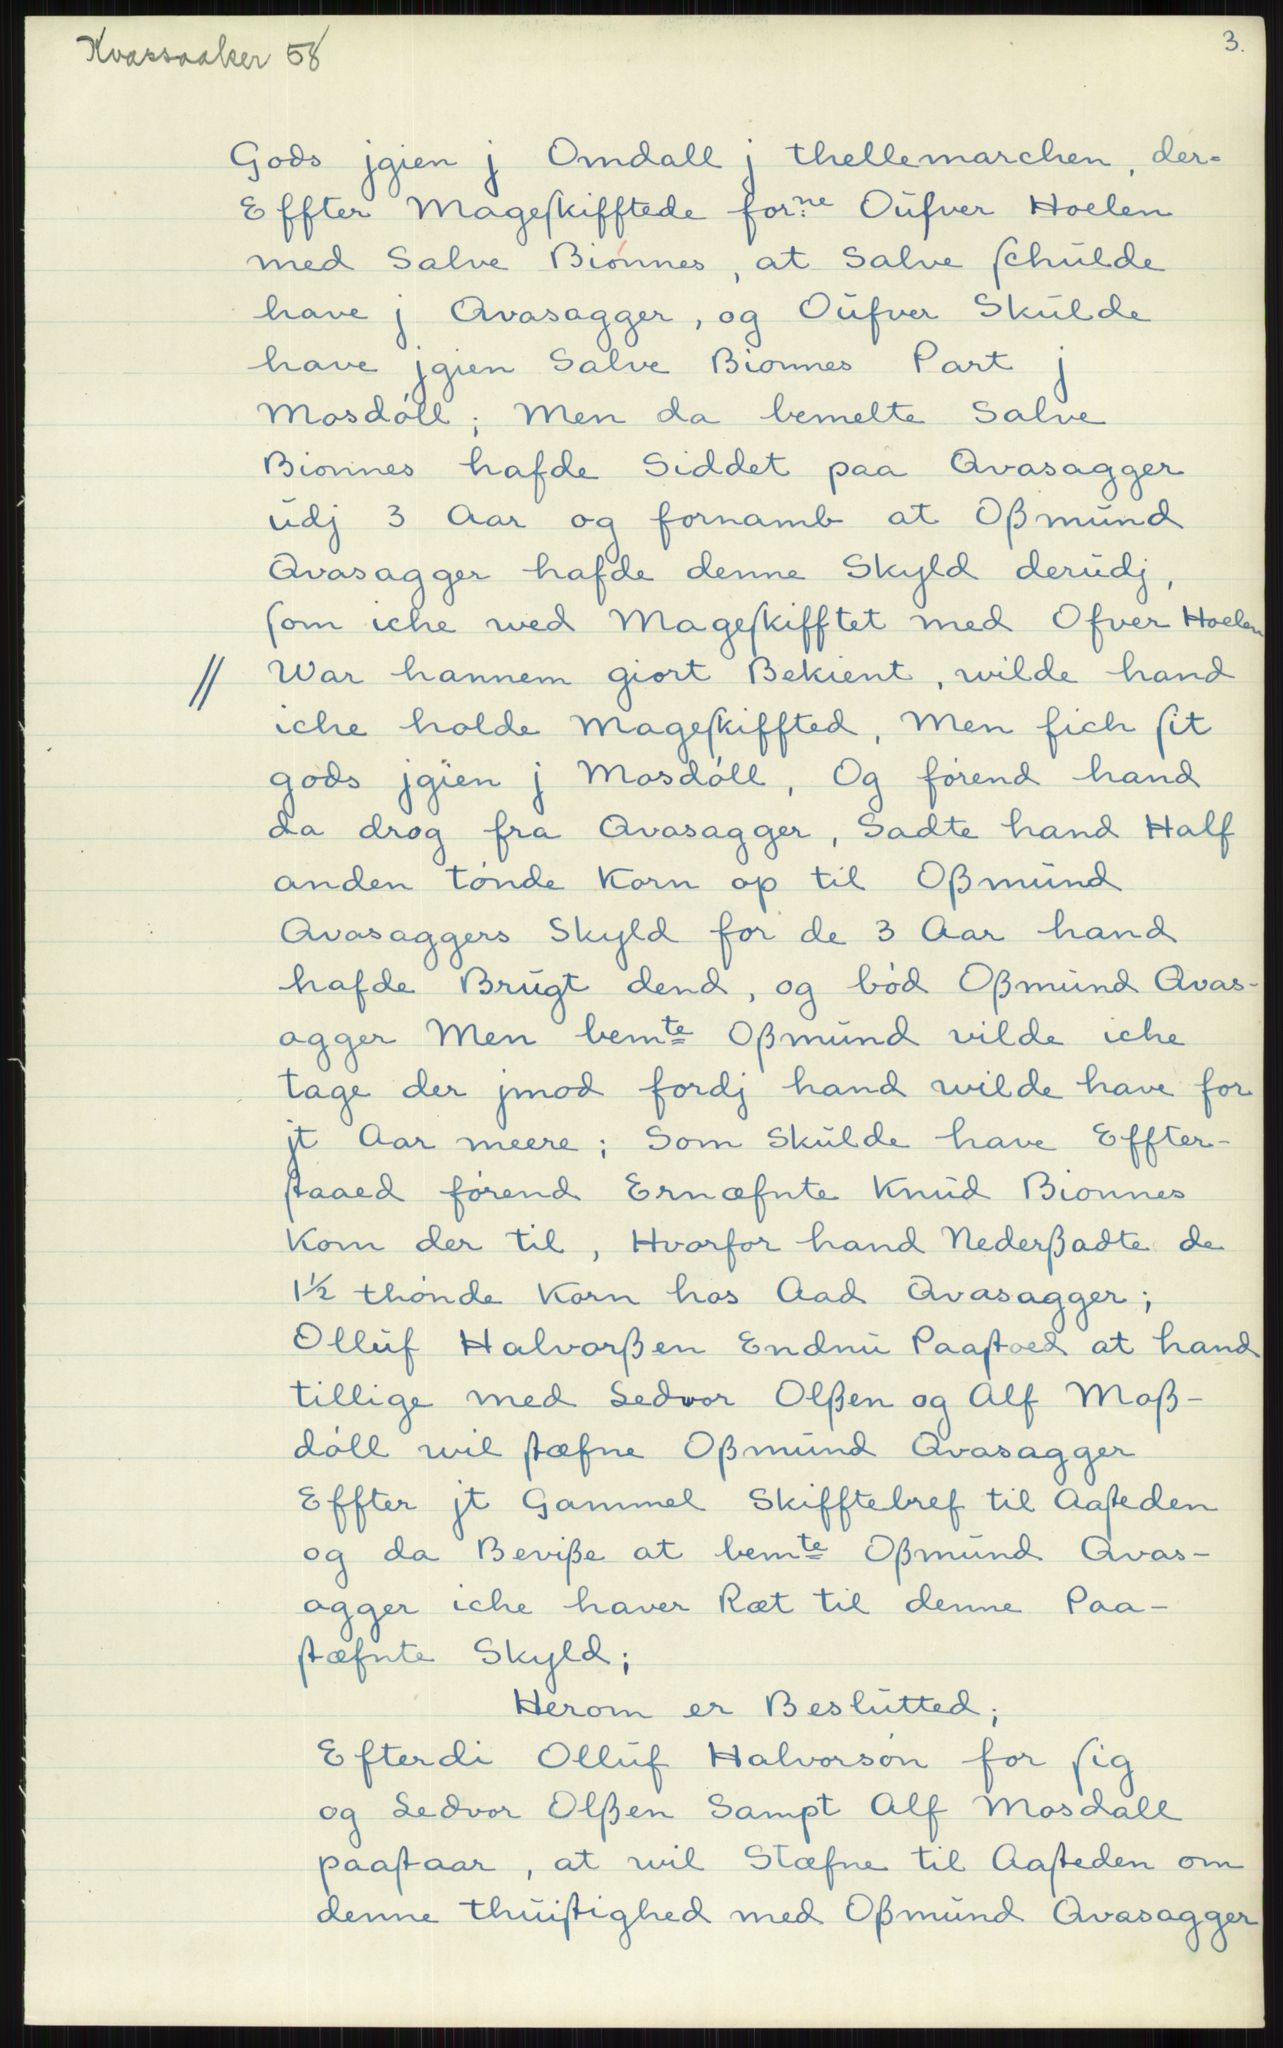 Kvassaaker 58
3.
Gods jgien j Omdall j thellemarchen, der-
Effter Mageſkifftede forne Oufver Hoelen
med Salve Biónnes, at Salve ſchulde
have j Qvasagger, og Oufver Skulde
have jgien Salve Bionnes Part j
Mosdóll; Men da bemelte Salve
Bionnes hafde Siddet paa Qvasagger
udj 3 Aar og fornamb at Oßmund
Qvasagger hafde denne Skyld derudj,
ſom iche wed Mageſkifftet med Ofver Hoelen
// War hannem giort Bekient, wilde hand
iche holde Mageſkiffted, Men fich ſit
gods jgien j Mosdóll, Og fórend hand
da drog fra Qvasagger, Sadte hand Half
anden tónde Korn op til Oßmund
Qvasaggers Skyld for de 3 Aar hand
hafde Brugt dend, og bód Oßmund Qvas-
agger Men bemte Oßmund vilde iche
tage der jmod fordj hand wilde have for
jt Aar meere; Som Skulde have Effter-
ſtaaed fórend Ernæfnte Knud Bionnes
Kom der til, Hvorfor hand Nederßadte de
1½ thónde Korn hos Aad Qvasagger;
Olluf Halvorßen Endnu Paaſtoed at hand
tillige med Sedvor Olßen og Alf Moß-
dóll wil ſtæfne Oßmund Qvasagger
Effter jt Gammel Skifftebref til Aaſteden
og da Beviße at bemte Oßmund Qvas-
agger iche haver Ræt til denne Paa-
ſtæfnte Skyld;
Herom er Beslutted;
Efterdi Olluf Halvorsón for ſig
og Sedvor Olßen Sampt Alf Mosdall
paaſtaar, at wil Stæfne til Aaſteden om
denne thuiſtighed med Oßmund Qvasagger